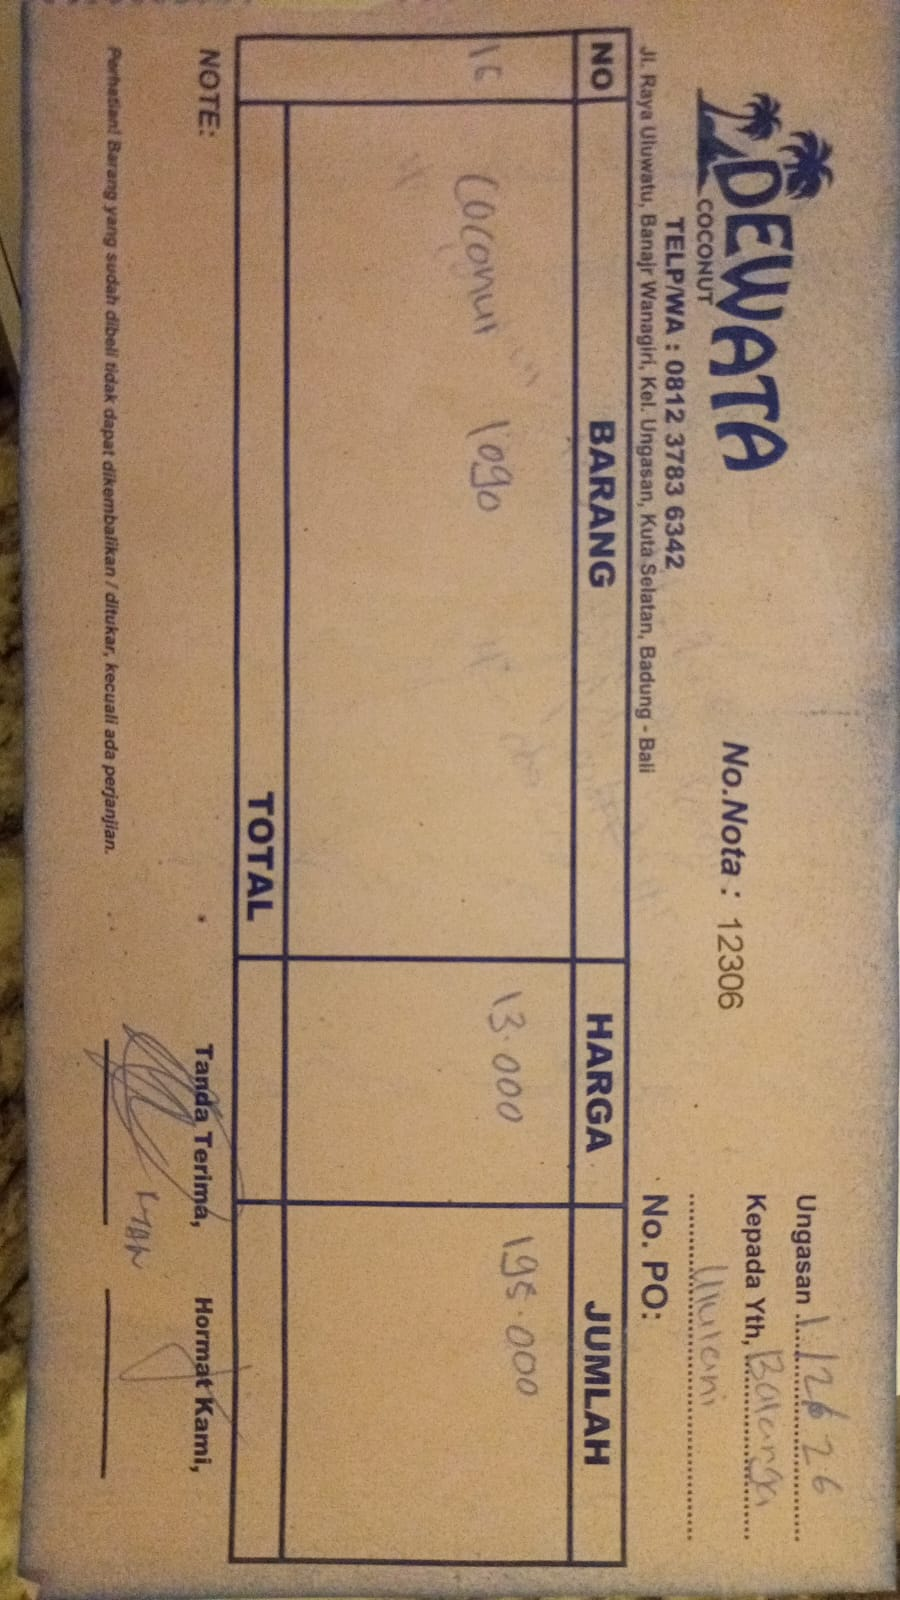 DEWATA
COCONUT
TELP/WA : 0812 3783 6342
Jl. Raya Uluwatu, Banajr Wanagiri, Kel. Ungasan, Kuta Selatan, Badung - Bali
No.Nota : 12306
Ungasan
Kepada Yth,
No. PO:
NO BARANG HARGA JUMLAH
coconut logo 13.000 195.000
TOTAL
NOTE:
Tanda Terima, Hormat Kami,
Perhatian! Barang yang sudah dibeli tidak dapat dikembalikan / ditukar, kecuali ada perjanjian.